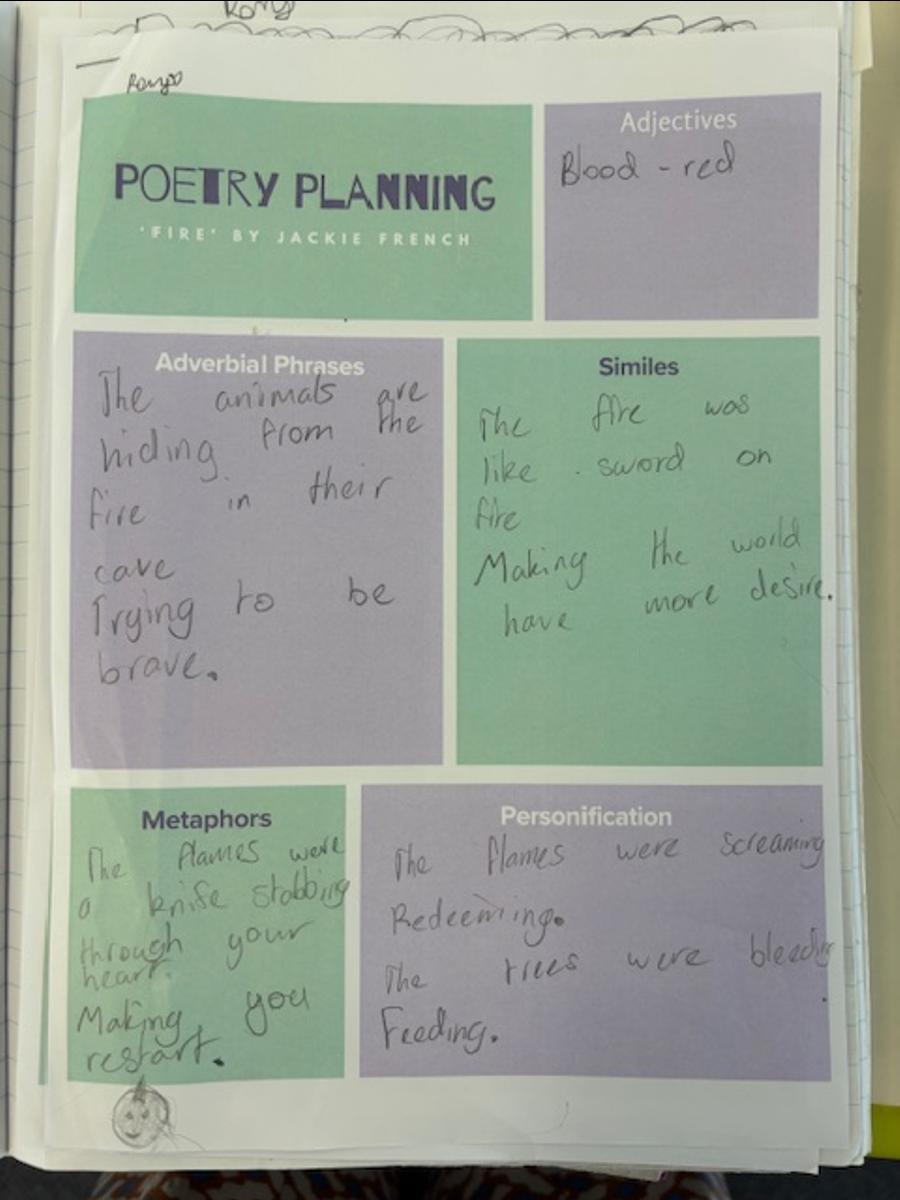 POETRY PLANNING
'FIRE' BY JACKIE FRENCH
Adjectives
Blood - red
Adverbial Phrases
The animals are
hiding from the
fire in their
cave
Trying to be
brave.
Similes
The fire was
like sword on
fire
Making the world
have more desire.
Metaphors
The flames were
a knife stabbing
through your
heart.
Making you
restart.
Personification
The flames were screaming
Redeeming.
The trees were bleeding
Feeding.